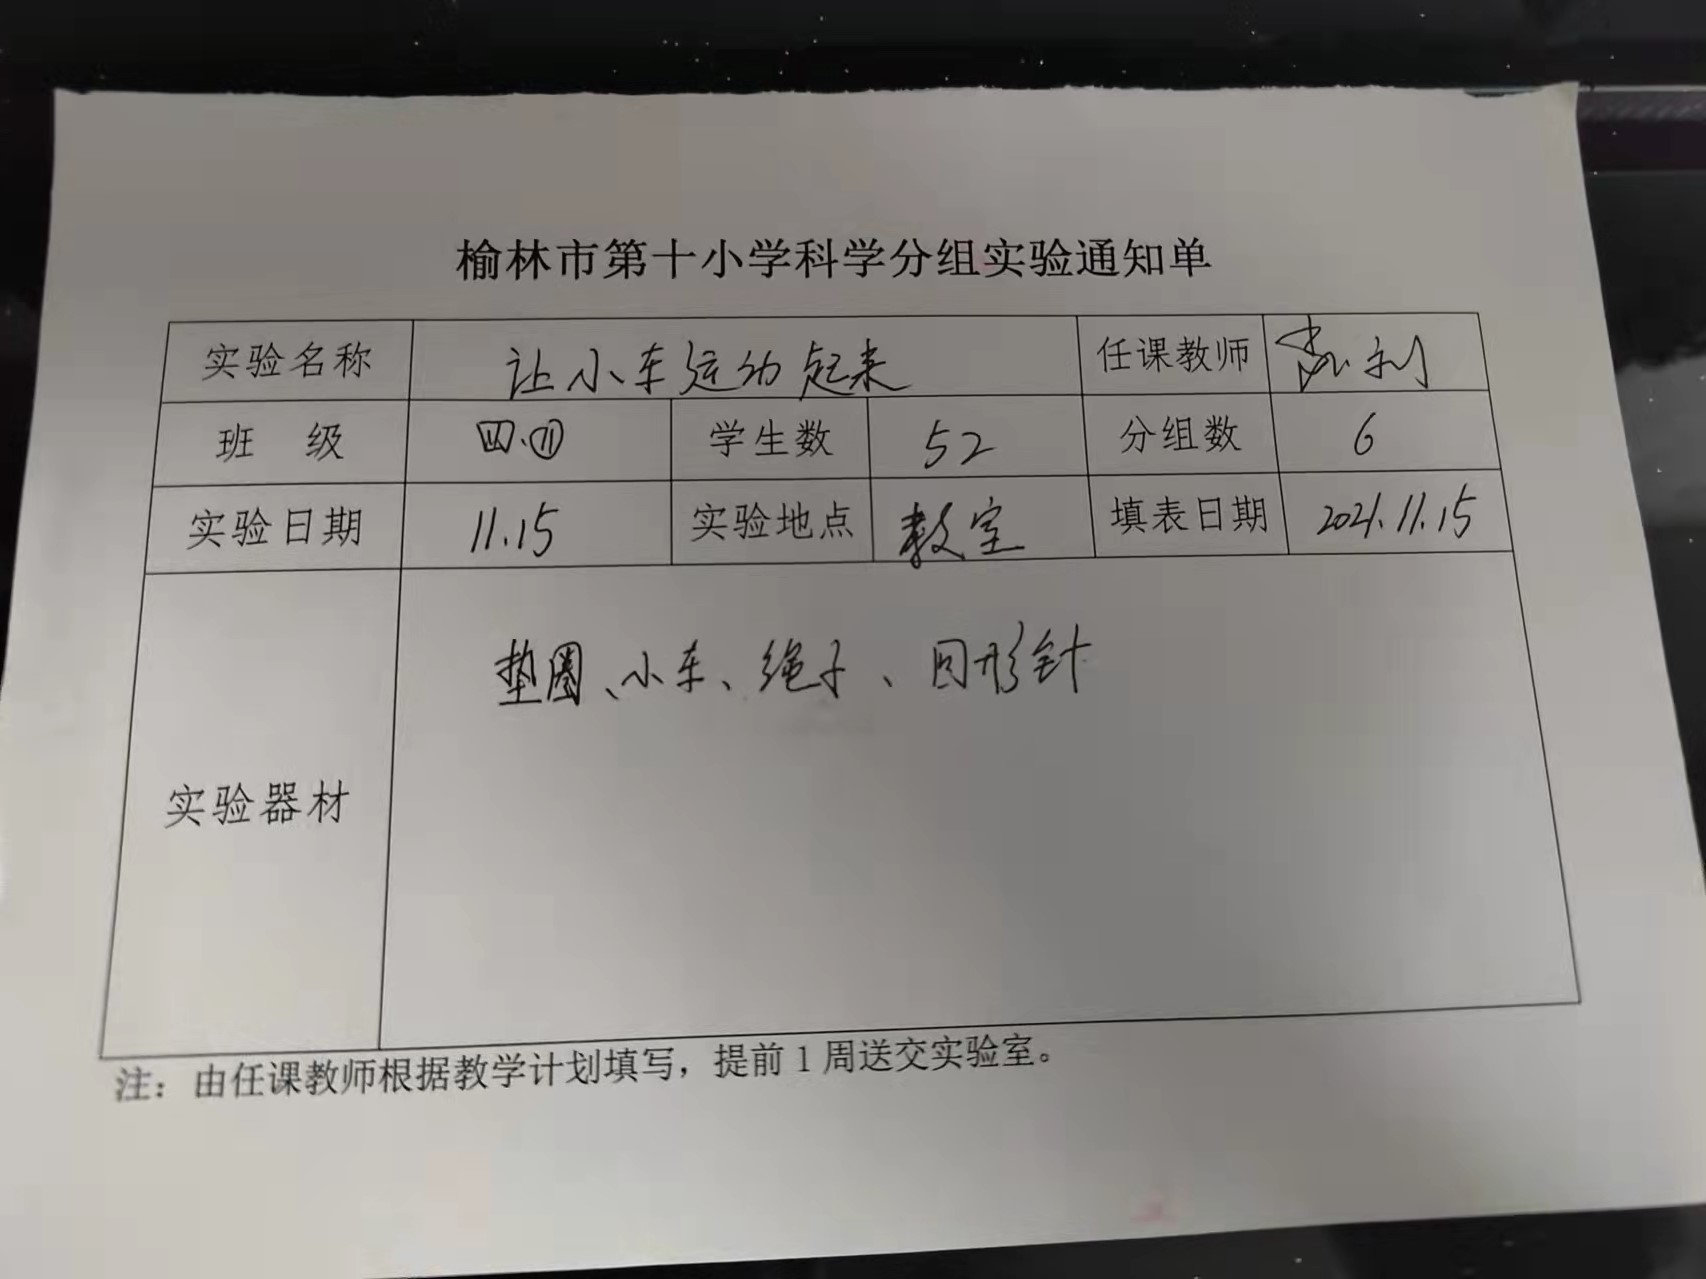 榆林市第十小学科学分组实验通知单
实验名称 让小车运动起来 任课教师 利
班 级 四.⑪ 学生数 52 分组数 6
实验日期 11.15 实验地点 教室 填表日期 2021.11.15
实验器材 垫圈、小车、绳子、回形针
注：由任课教师根据教学计划填写，提前1周送交实验室。